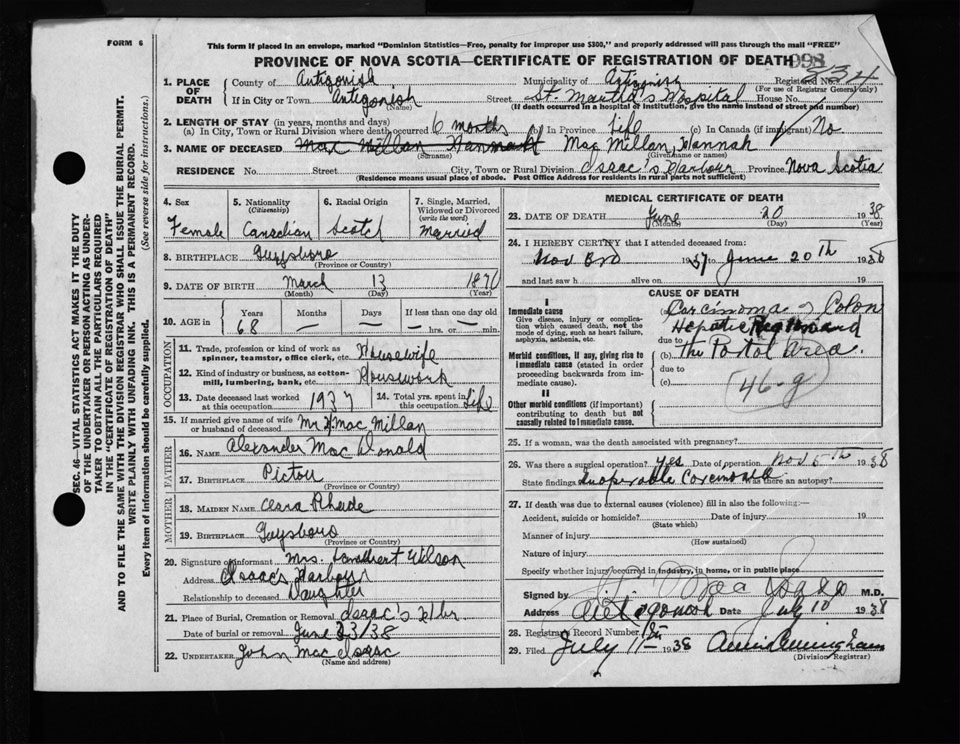 FORM 6
This form if placed in an envelope, marked "Dominion Statistics—Free, penalty for improper use $300," and properly addressed will pass through the mail "FREE"
998
PROVINCE OF NOVA SCOTIA—CERTIFICATE OF REGISTRATION OF DEATH
1. PLACE OF DEATH County of Antigonish Municipality of Antigonish Registered No. 334
(For use of Registrar General only)
If in City or Town Antigonish Street St. Martha's Hospital House No.
(Name) (If death occurred in a hospital or institution, give the name instead of street and number)
2. LENGTH OF STAY (in years, months and days)
(a) In City, Town or Rural Division where death occurred 6 months (b) In Province Life (c) In Canada (if immigrant) No
3. NAME OF DECEASED Mac Millan Hannah Mac Millan, Hannah
(Surname) (Given name or names)
RESIDENCE No. Street City, Town or Rural Division Isaac's Harbour Province Nova Scotia
(Residence means usual place of abode. Post Office Address for residents in rural parts not sufficient)
4. Sex 5. Nationality (Citizenship) 6. Racial Origin 7. Single, Married, Widowed or Divorced (write the word)
Female Canadian Scotch Married
8. BIRTHPLACE Guysboro
(Province or Country)
9. DATE OF BIRTH March 13 1870
(Month) (Day) (Year)
10. AGE in Years Months Days If less than one day old
68 — — hrs. or min.
OCCUPATION
11. Trade, profession or kind of work as spinner, teamster, office clerk, etc. Housewife
12. Kind of industry or business, as cotton-mill, lumbering, bank, etc. Housework
13. Date deceased last worked at this occupation 1937 14. Total yrs. spent in this occupation Life
15. If married give name of wife or husband of deceased Mr H. Mac Millan
FATHER
16. NAME Alexander Mac Donald
17. BIRTHPLACE Pictou
(Province or Country)
MOTHER
18. MAIDEN NAME
19. BIRTHPLACE Guysboro
(Province or Country)
20. Signature of informant Mrs. Wilson
Address Isaac's Harbour
Relationship to deceased Daughter
21. Place of Burial, Cremation or Removal Isaac's Hbr
Date of burial or removal June 23/38
22. UNDERTAKER John Mac Isaac
(Name and address)
MEDICAL CERTIFICATE OF DEATH
23. DATE OF DEATH June 20 1938
(Month) (Day) (Year)
24. I HEREBY CERTIFY that I attended deceased from:
Nov 3rd 1937 to June 20th 1938
and last saw h alive on 19
CAUSE OF DEATH
I
Immediate cause
Give disease, injury or complication which caused death, not the mode of dying, such as heart failure, asphyxia, asthenia, etc.
(a) Carcinoma of Colon
Hepatic Region and
due to
Morbid conditions, if any, giving rise to immediate cause (stated in order proceeding backwards from immediate cause).
(b) the Portal Area.
due to
(c)
46-g
II
Other morbid conditions (if important) contributing to death but not causally related to immediate cause.
25. If a woman, was the death associated with pregnancy?
26. Was there a surgical operation? Yes Date of operation Nov 5th 1938
State findings Inoperable Carcinoma Was there an autopsy?
27. If death was due to external causes (violence) fill in also the following:—
Accident, suicide or homicide? Date of injury 19
(State which)
Manner of injury
(How sustained)
Nature of injury
Specify whether injury occurred in industry, in home, or in public place
Signed by M.D.
Address Antigonish Date July 10 1938
28. Registrars Record Number
29. Filed July 11 1938 Annie Cunningham
(Division Registrar)
SEC. 46—VITAL STATISTICS ACT MAKES IT THE DUTY
OF THE UNDERTAKER OR PERSON ACTING AS UNDER-
TAKER TO OBTAIN ALL THE PARTICULARS REQUIRED
IN THE "CERTIFICATE OF REGISTRATION OF DEATH"
AND TO FILE THE SAME WITH THE DIVISION REGISTRAR WHO SHALL ISSUE THE BURIAL PERMIT.
WRITE PLAINLY WITH UNFADING INK. THIS IS A PERMANENT RECORD.
Every item of information should be carefully supplied. (See reverse side for instructions.)